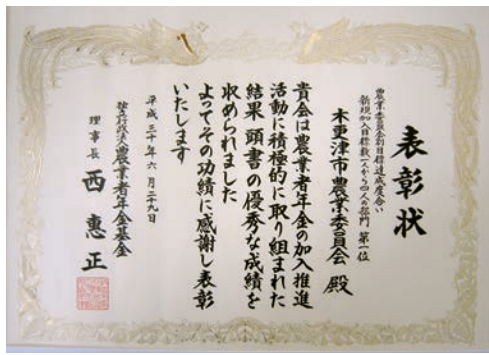 表彰状
農業委員会別目標達成度合い
新規加入目標数一人から四人の部門 第一位
木更津市農業委員会 殿
貴会は農業者年金の加入推進
活動に積極的に取り組まれた
結果 頭書の優秀な成績を
収められました
よってその功績に感謝し表彰
いたします
平成三十年六月二十九日
独立行政法人農業者年金基金
理事長 西 恵正